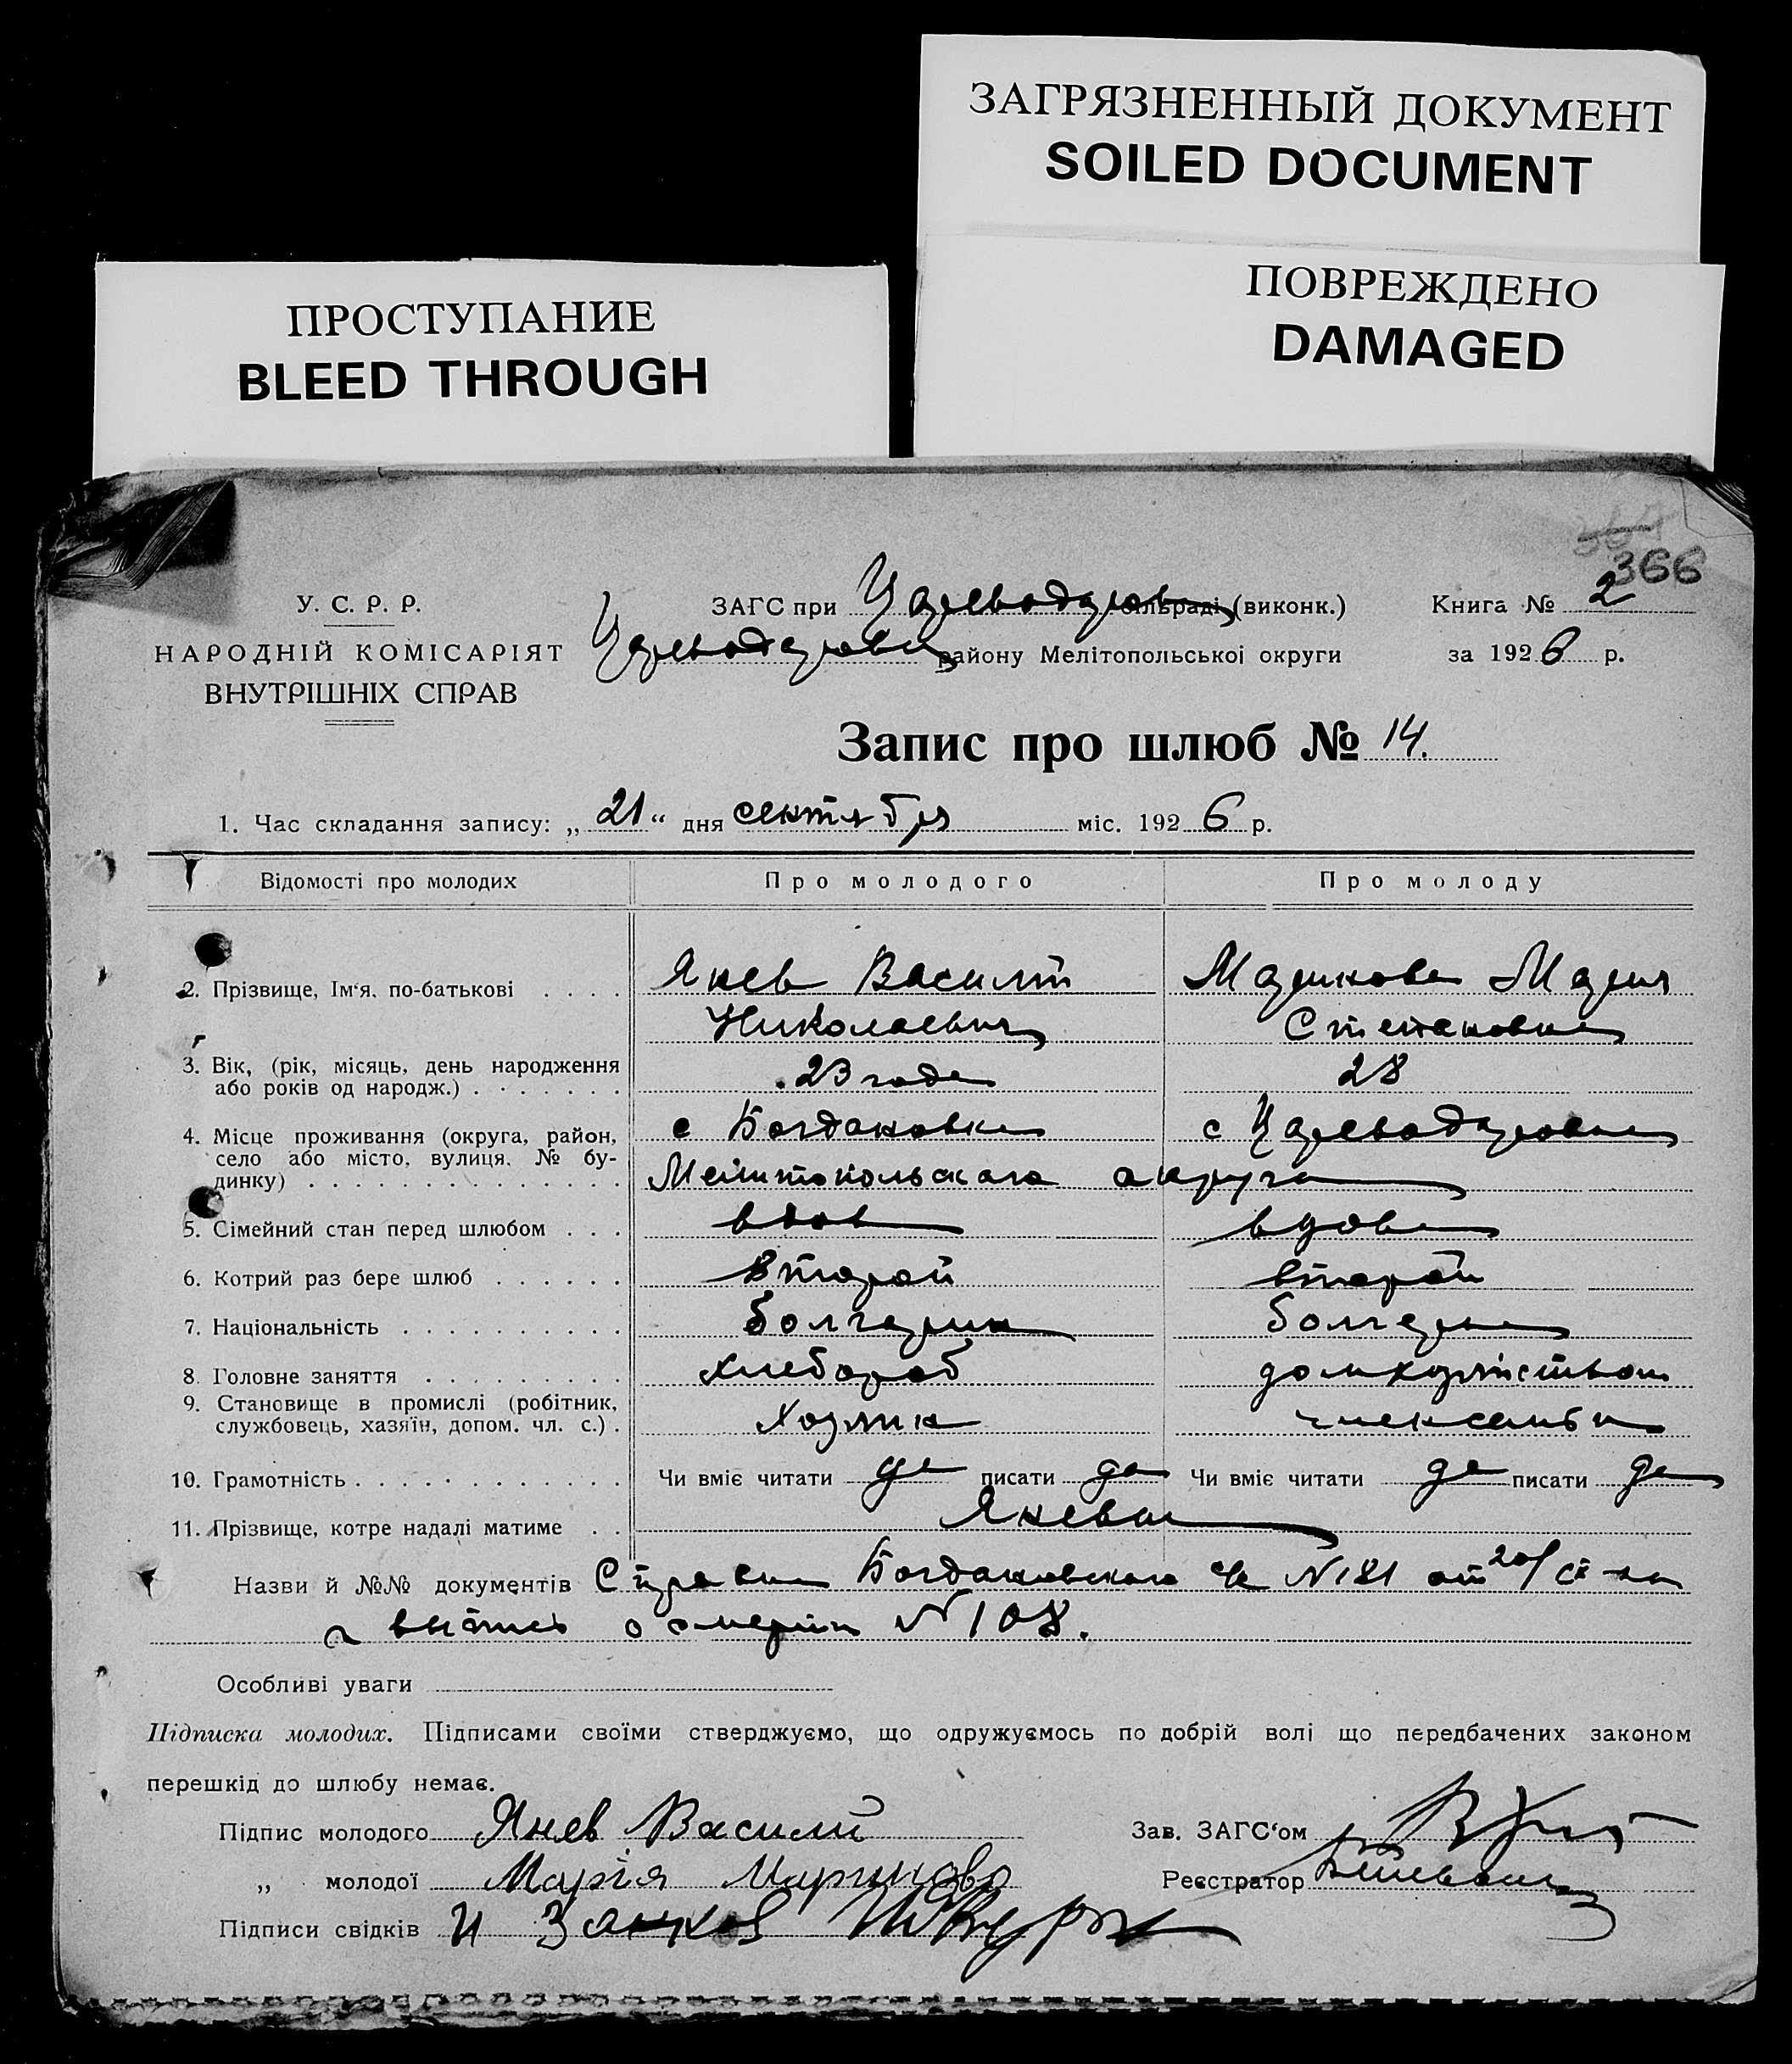 ЗАГРЯЗНЕННЫЙ ДОКУМЕНТ
SOILED DOCUMENT
ПОВРЕЖДЕНО
DAMAGED
ПРОСТУПАНИЕ
BLEED THROUGH
366
У. С. Р. Р.
НАРОДНІЙ КОМІСАРІЯТ
ВНУТРІШНІХ СПРАВ
ЗАГС при Цареводаровц сільраді (виконк.) Книга № 2
Цареводаровц району Мелітопольської округи за 1926 р.
Запис про шлюб № 14.
1. Час складання запису: „21“ дня сентября міс. 1926 р.
Відомості про молодих Про молодого Про молоду
2. Прізвище, Ім‘я, по-батькові Янев Василий Маринова Мария
Николаевич Степановна
3. Вік, (рік, місяць, день народження 23 года 28
або років од народж.)
4. Місце проживання (округа, район, с Богдановка с Цареводаровка
село або місто, вулиця, № бу-
динку) Мелитопольского округа
5. Сімейний стан перед шлюбом вдов вдова
6. Котрий раз бере шлюб второй второй
7. Національність болгарин болгарка
8. Головне заняття хлебороб домхозяйством
9. Становище в промислі (робітник,
службовець, хазяїн, допом. чл. с.) Хозяин член семьи
10. Грамотність Чи вміє читати да писати да Чи вміє читати да писати да
11. Прізвище, котре надалі матиме Яневы
Назви й №№ документів Справка Богдановского с/с N 181 от 20/
выпись о смерти N 108.
Особливі уваги
Підписка молодих. Підписами своїми стверджуємо, що одружуємось по добрій волі що передбачених законом
перешкід до шлюбу немає.
Підпис молодого Янев Василий Зав. ЗАГС‘ом
„ молодої Марія Маринова Реєстратор
Підписи свідків И Занков